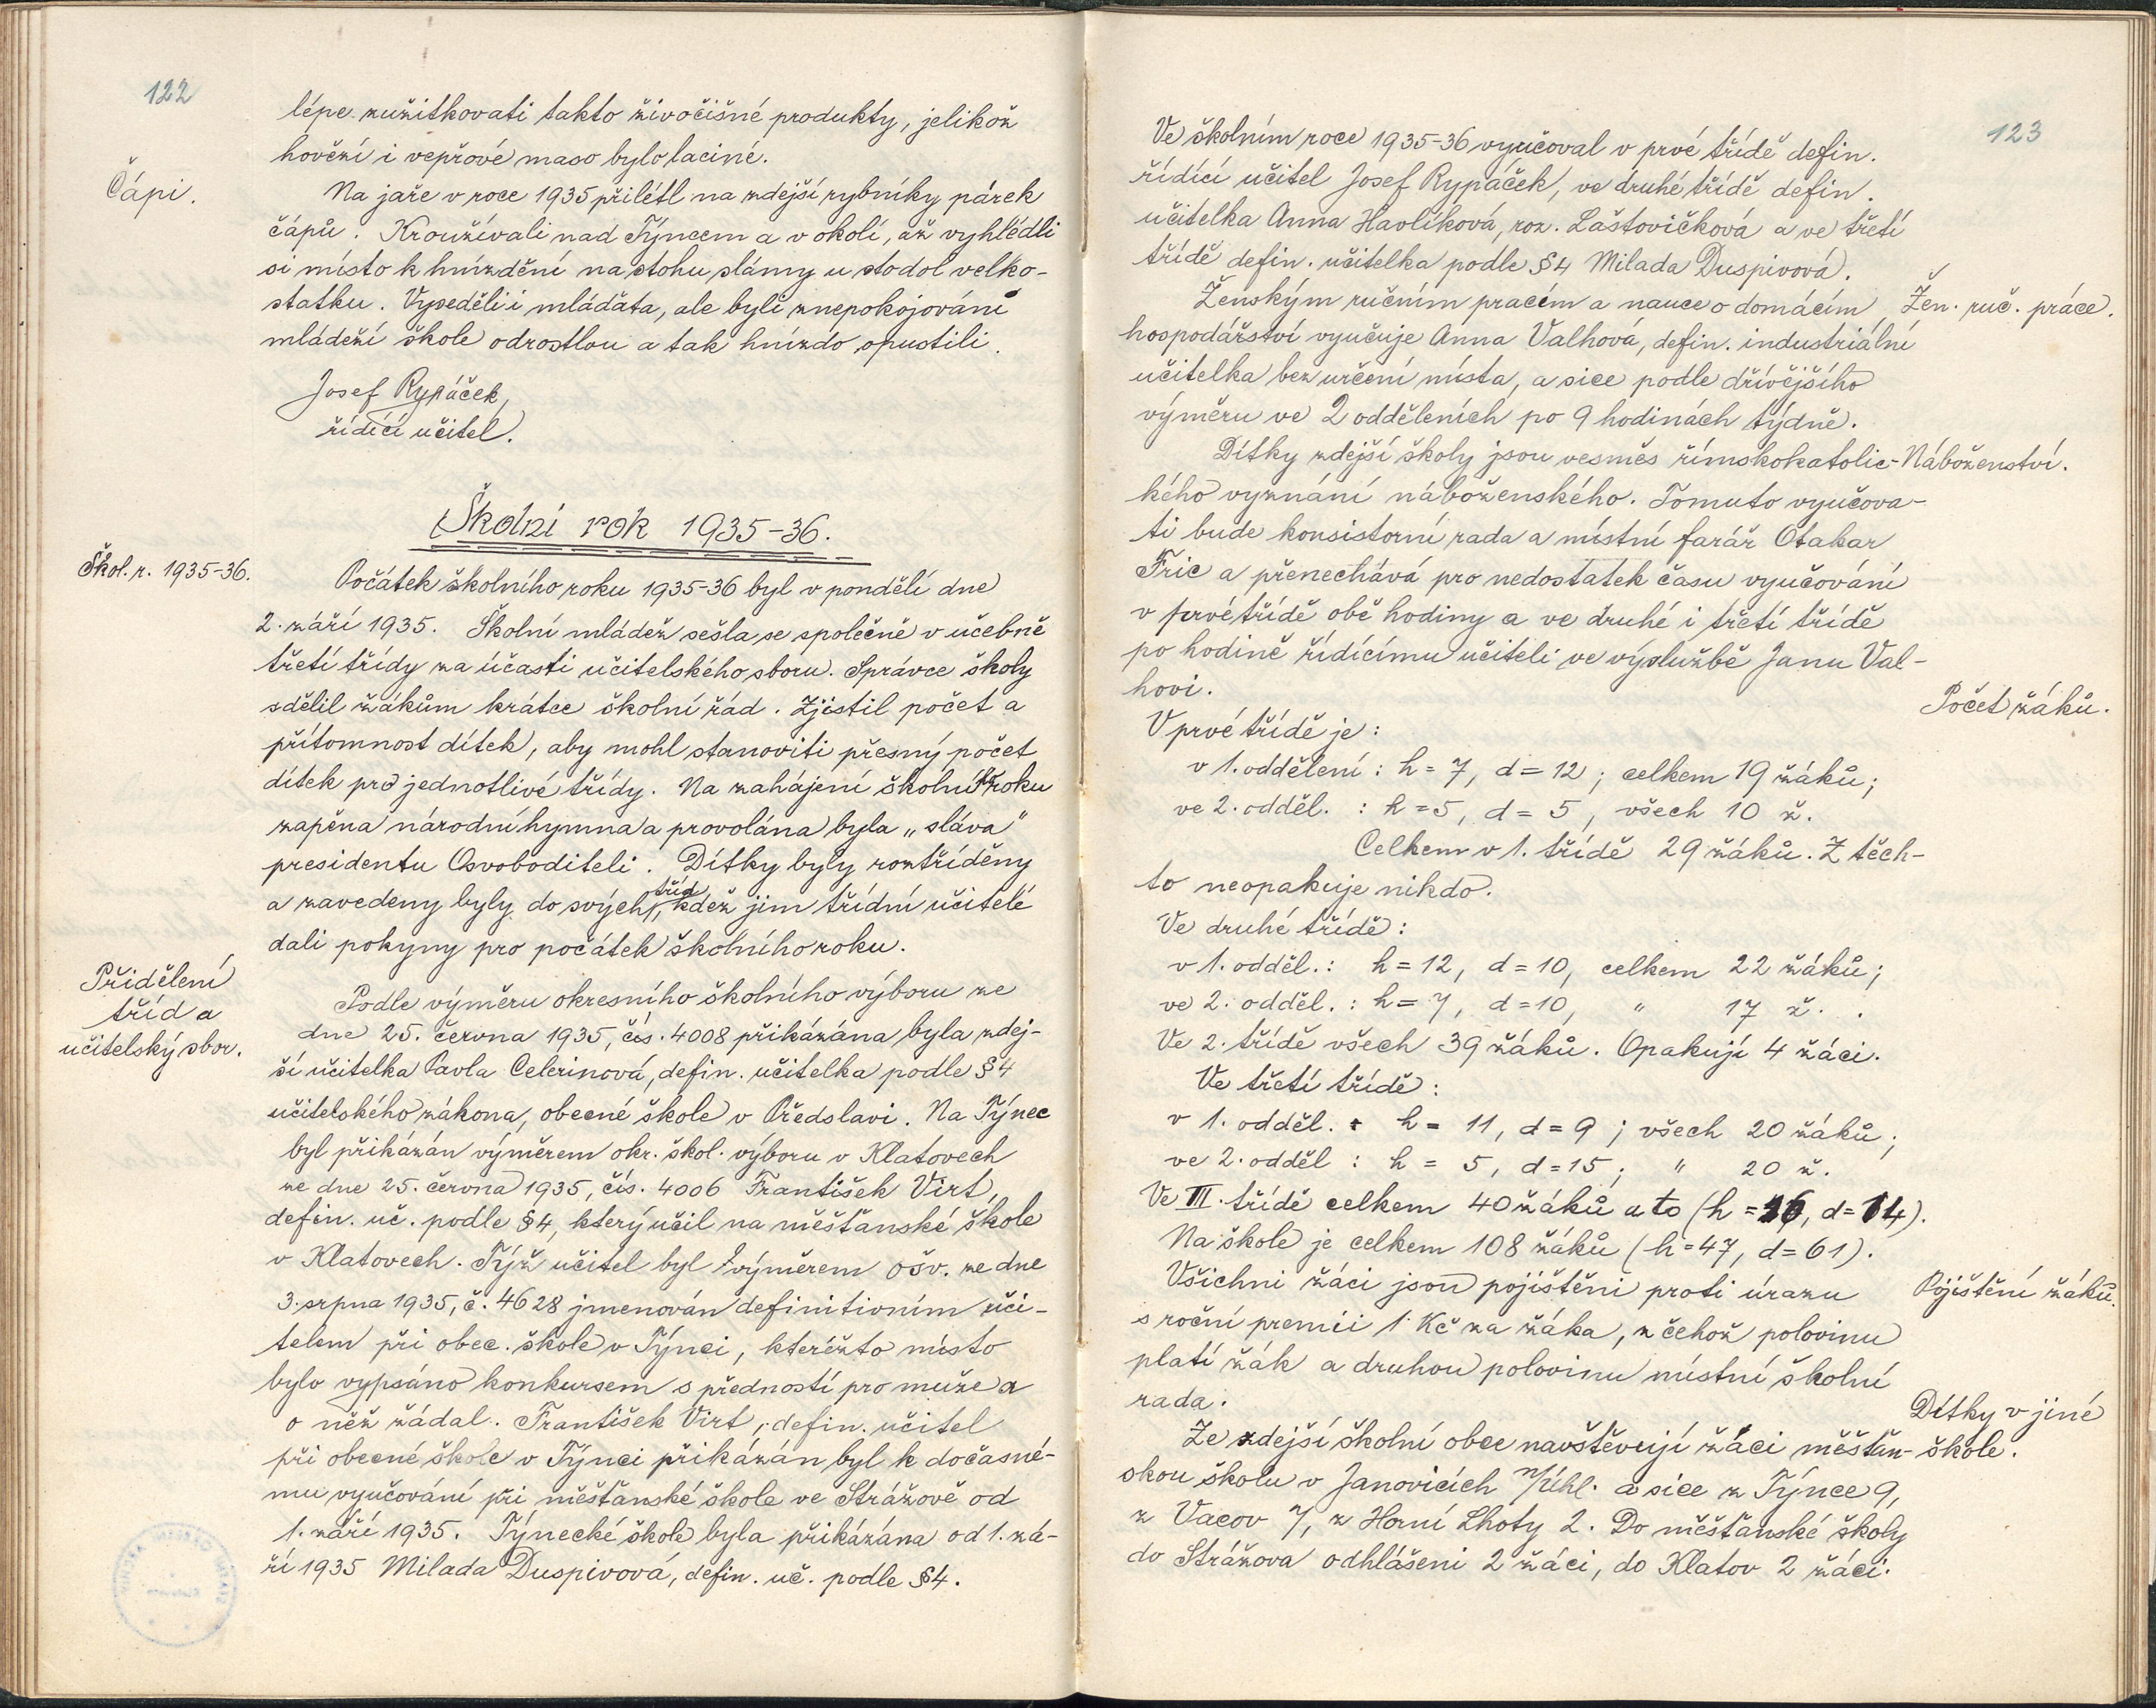 122
lépe zužitkovati takto živočišné produkty, jelikož
hovězí i vepřové maso bylo laciné.
Čápi.
Na jaře v roce 1935 přilétl na zdejší rybníky párek
čápů. Kroužívali nad Týncem a v okolí, až vyhlédli
si místo k hnízdění na stohu slámy u stodol velko-
statku. Vyseděli i mláďata, ale byli znepokojováni
mládeží škole odrostlou a tak hnízdo opustili.
Josef Rypáček,
řídící učitel.
Školní rok 1935-36.
Škol. r. 1935-36.
Počátek školního roku 1935-36 byl v pondělí dne
2. září 1935. Školní mládež sešla se společně v učebně
třetí třídy za účasti učitelského sboru. Správce školy
sdělil žákům krátce školní řád. Zjistil počet a
přítomnost dítek, aby mohl stanoviti přesný počet
dítek pro jednotlivé třídy. Na zahájení školního roku
zapěna národní hymna a provolána byla „sláva"
presidentu Osvoboditeli. Dítky byly roztříděny
a zavedeny byly do svých tříd, kdež jim třídní učitelé
dali pokyny pro počátek školního roku.
Přidělení
tříd a
učitelský sbor.
Podle výměru okresního školního výboru ze
dne 25. června 1935, čís. 4008 přikázána byla zdej-
ší učitelka Pavla Celerinová, defin. učitelka podle §4
učitelského zákona, obecné škole v Předslavi. Na Týnec
byl přikázán výměrem okr. škol. výboru v Klatovech
ze dne 25. června 1935, čís. 4006 František Virt,
defin. uč. podle §4, který učil na měšťanské škole
v Klatovech. Týž učitel byl výměrem ošv. ze dne
3. srpna 1935, č. 4628 jmenován definitivním uči-
telem při obec. škole v Týnci, kteréžto místo
bylo vypsáno konkursem s předností pro muže a
o něž žádal. František Virt, defin. učitel
při obecné škole v Týnci přikázán byl k dočasné-
mu vyučování při měšťanské škole ve Strážově od
1. září 1935. Týnecké škole byla přikázána od 1. zá-
ří 1935 Milada Duspivová, defin. uč. podle §4.
123
Ve školním roce 1935-36 vyučoval v prvé třídě defin.
řídící učitel Josef Rypáček, ve druhé třídě defin.
učitelka Anna Havlíková, roz. Laštovičková a ve třetí
třídě defin. učitelka podle §4 Milada Duspivová.
Ženským ručním pracím a nauce o domácím
Žen. ruč. práce.
hospodářství vyučuje Anna Valhová, defin. industriální
učitelka bez určení místa, a sice podle dřívějšího
výměru ve 2 odděleních po 9 hodinách týdně.
Dítky zdejší školy jsou vesměs římskokatolic-
Náboženství.
kého vyznání náboženského. Tomuto vyučova-
ti bude konsistorní rada a místní farář Otakar
Fric a přenechává pro nedostatek času vyučování
v prvé třídě obě hodiny a ve druhé i třetí třídě
po hodině řídícímu učiteli ve výslužbě Janu Val-
hovi.
Počet žáků.
V prvé třídě je:
v 1. oddělení: h = 7, d = 12; celkem 19 žáků;
ve 2. odděl. : h = 5, d = 5, všech 10 ž.
Celkem v 1. třídě 29 žáků. Z těch-
to neopakuje nikdo.
Ve druhé třídě:
v 1. odděl.: h = 12, d = 10, celkem 22 žáků;
ve 2. odděl. : h = 7, d = 10, " 17 ž.
Ve 2. třídě všech 39 žáků. Opakují 4 žáci.
Ve třetí třídě:
v 1. odděl. : h = 11, d = 9; všech 20 žáků;
ve 2. odděl : h = 5, d = 15; " 20 ž.
Ve III. třídě celkem 40 žáků a to (h = 16, d = 14).
Na škole je celkem 108 žáků (h = 47, d = 61).
Všichni žáci jsou pojištěni proti úrazu
Pojištění žáků.
s roční premii 1 Kč za žáka, z čehož polovinu
platí žák a druhou polovinu místní školní
rada.
Dítky v jiné
škole.
Ze zdejší školní obce navštěvují žáci měšťan-
skou školu v Janovicích n/Úhl. a sice z Týnce 9,
z Vacov 7, z Horní Lhoty 2. Do měšťanské školy
do Strážova odhlášeni 2 žáci, do Klatov 2 žáci.